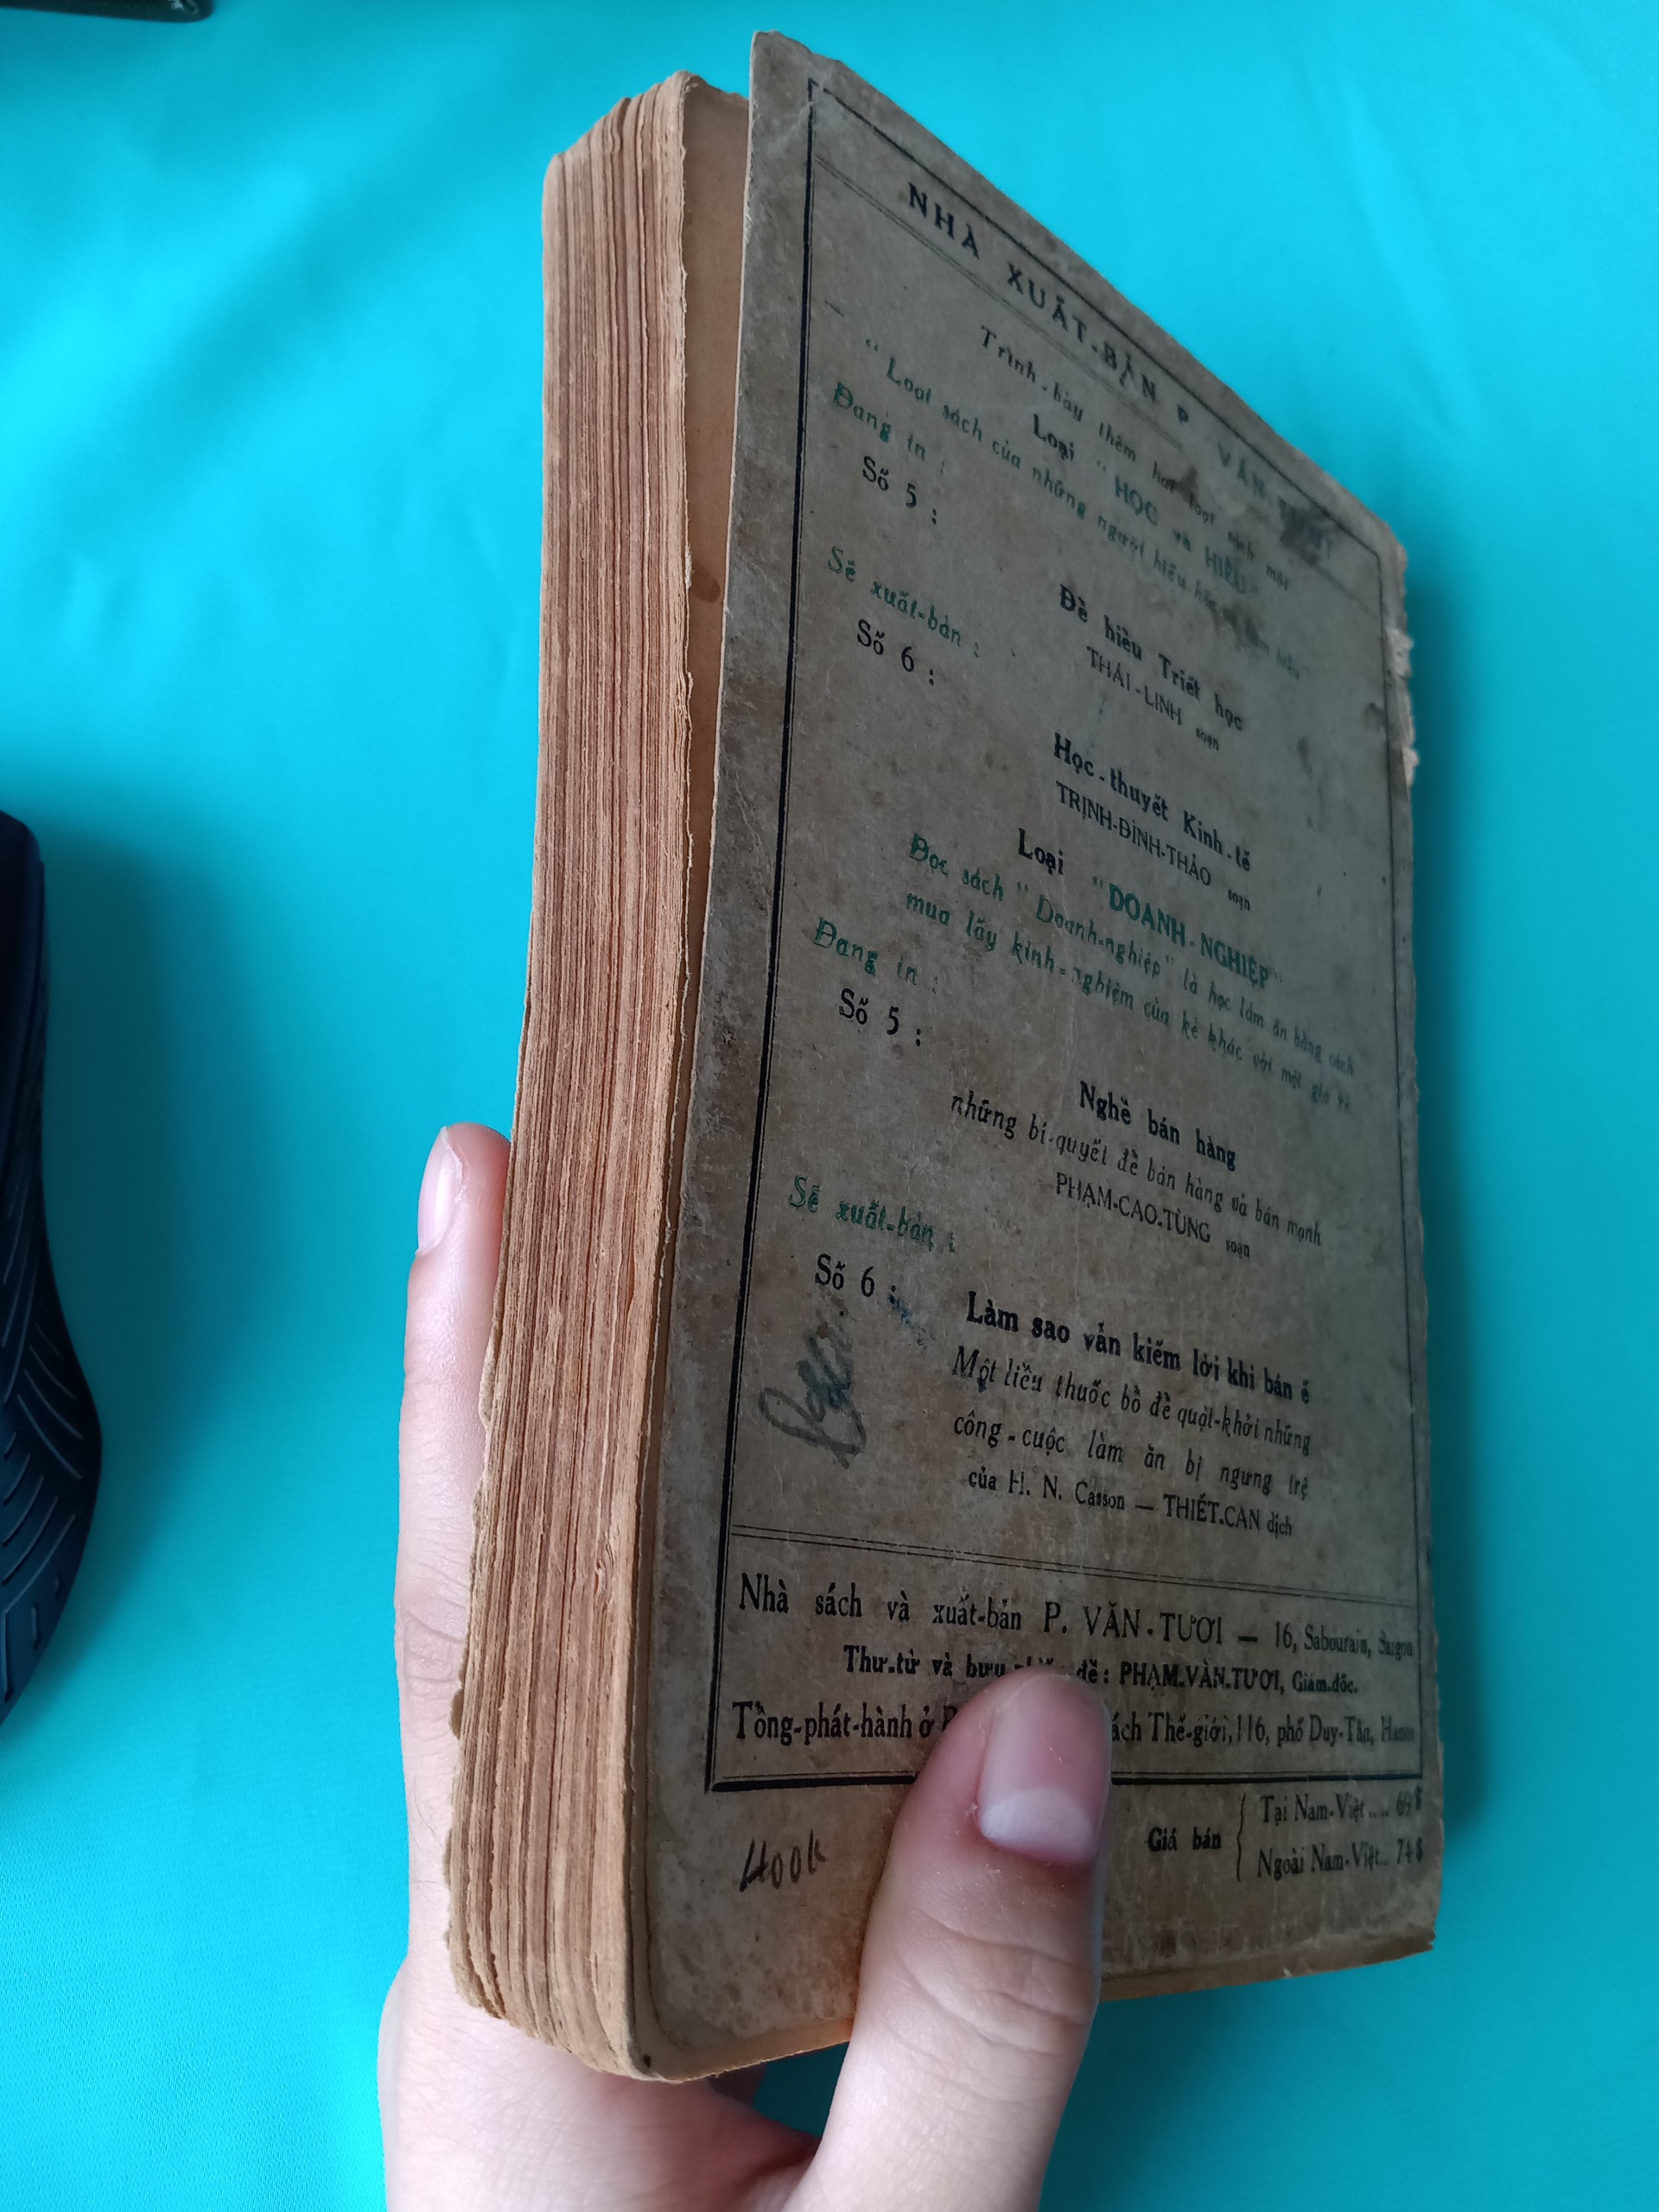 NHÀ XUẤT-BẢN P. VĂN TƯƠI
Trình-bày thêm hai loạt sách mới
Loại "HỌC và HIỂU"
"Loạt sách của những người hiếu học
Đang in :
Số 5 :
Để hiểu Triết học
THÁI-LINH soạn
Sẽ xuất-bản :
Số 6 :
Học-thuyết Kinh-tế
TRỊNH-ĐÌNH-THẢO soạn
Loại "DOANH-NGHIỆP"
Đọc sách "Doanh-nghiệp" là học làm ăn bằng cách
mua lấy kinh-nghiệm của kẻ khác với một giá rẻ.
Đang in :
Số 5 :
Nghề bán hàng
những bí-quyết để bán hàng và bán mạnh
PHẠM-CAO-TÙNG soạn
Sẽ xuất-bản :
Số 6 :
Làm sao vẫn kiếm lời khi bán ế
Một liều thuốc bổ để quật-khởi những
công-cuộc làm ăn bị ngưng trệ
của H. N. Casson — THIẾT-CAN dịch
Nhà sách và xuất-bản P. VĂN-TƯƠI — 16, Sabourain, Saigon
Thư-từ và bưu đề: PHẠM-VĂN-TƯƠI, Giám-đốc.
Tổng-phát-hành ở ách Thế-giới, 116, phố Duy-Tân, Hanoi
Giá bán
Tại Nam-Việt .... 69$
Ngoài Nam-Việt.. 74$
400k